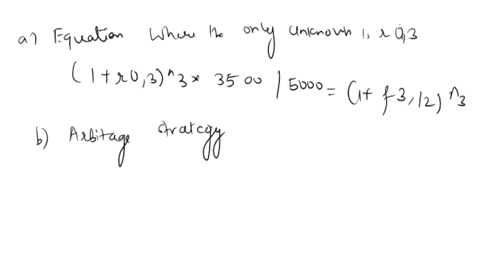 a) Equation Where the only unknown is r 0,3
(1+r0,3)^3 * 3500 / 5000 = (1+ f3,12)^3
b) Arbitage strategy